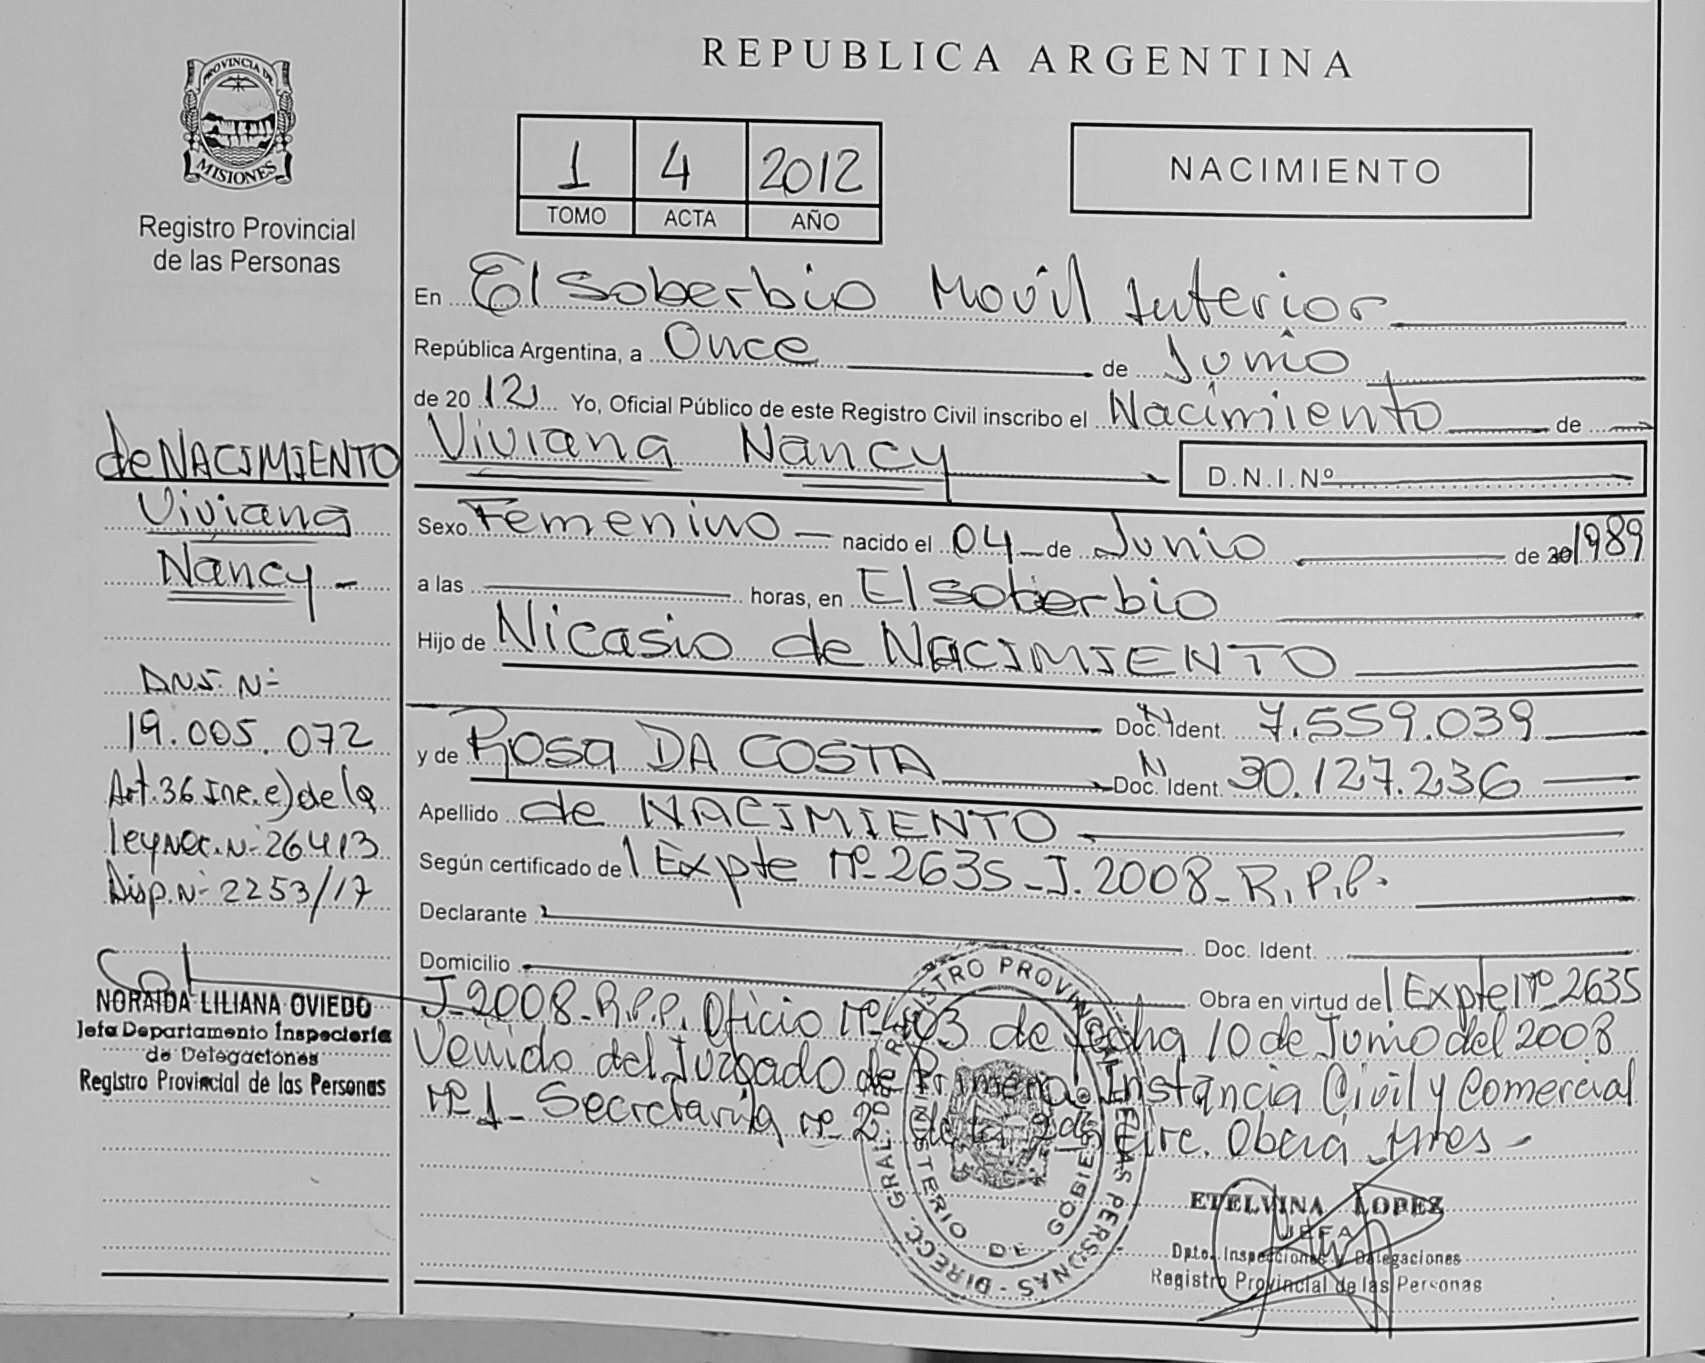 PROVINCIA DE
MISIONES
Registro Provincial
de las Personas
de NACIMIENTO
Viviana
Nancy -
D.N.I. Nº
19.005.072
Art. 36 Inc. e) de la
ley Nac. Nº 26413
Disp. Nº 2253/17
NORAIDA LILIANA OVIEDO
Jefa Departamento Inspectoría
de Delegaciones
Registro Provincial de las Personas
REPUBLICA ARGENTINA
1 4 2012
TOMO ACTA AÑO
NACIMIENTO
En El Soberbio Movil Interior
República Argentina, a Once de Junio
de 20 12 Yo, Oficial Público de este Registro Civil inscribo el Nacimiento de
Viviana Nancy D.N.I. Nº
Sexo Femenino - nacido el 04 de Junio de 20 1989
a las horas, en El Soberbio
Hijo de Nicasio de NACIMIENTO
Doc. Ident. 7.559.039
y de Rosa DA COSTA Doc. Ident. 30.127.236
Apellido de NACIMIENTO
Según certificado de Expte Nº 2635 - J. 2008 - R.P.P.
Declarante Doc. Ident.
Domicilio Obra en virtud de Expte Nº 2635
J - 2008 - R.P.P. Oficio Nº 403 de fecha 10 de Junio del 2008
Venido del Juzgado de Primera Instancia Civil y Comercial
Nº 1 - Secretaria Nº 2 de la 2da Circ. Oberá Mnes -
DIRECC. GRAL. DE REGISTRO PROVINCIAL DE LAS PERSONAS
MINISTERIO DE GOBIERNO
ETELVINA LOPEZ
JEFA
Dpto. Inspecciones y Delegaciones
Registro Provincial de las Personas